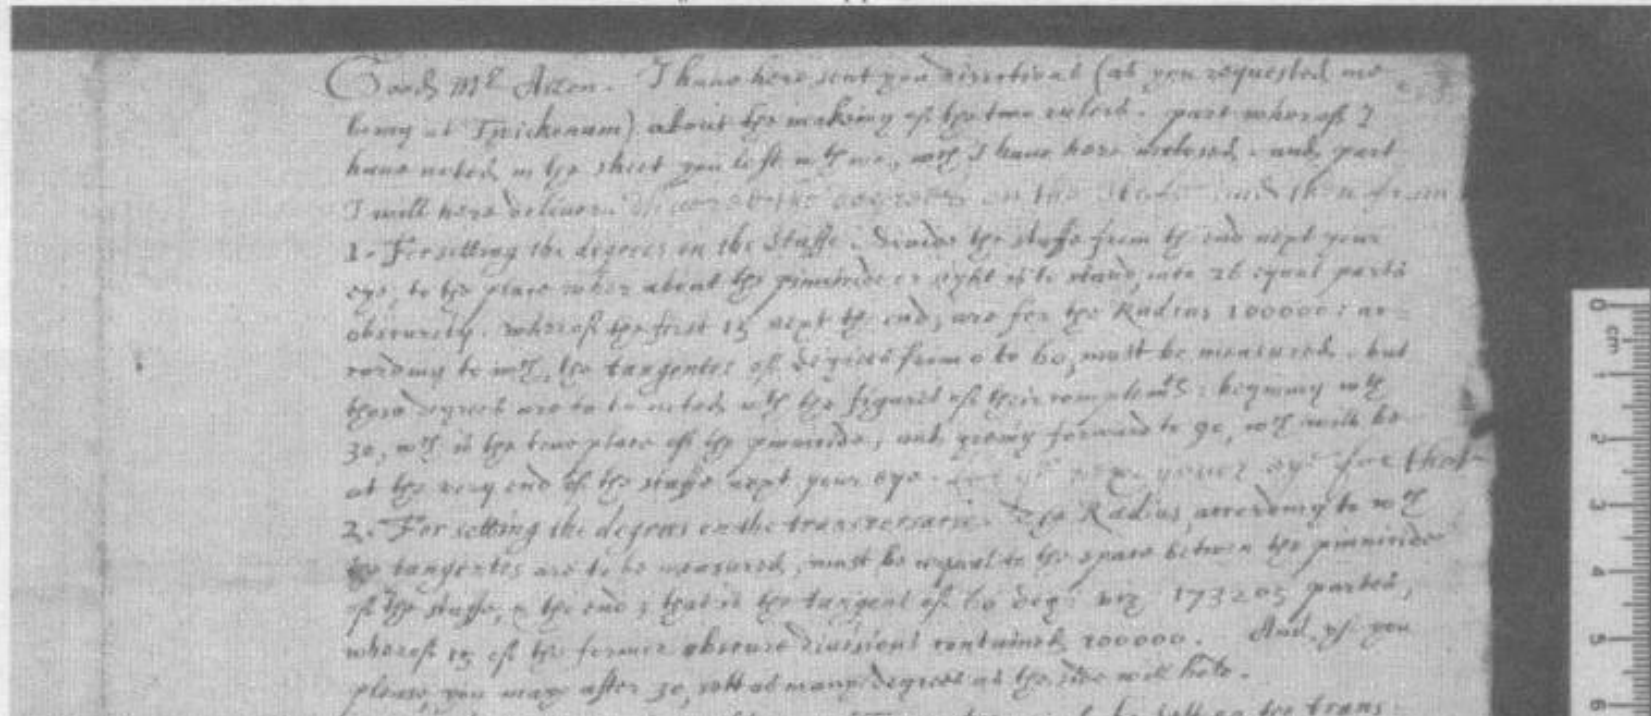 Good Mr Acton. I haue here sent you directions (as you requested me
being at Twickenam) about the making of the two rulers. part wherof I
haue noted in the sheet you left wth me, wch I haue here inclosed. and part
I will here deliuer.
1. For setting the degrees on the Staffe. Deuide the staffe from the end next your
eye, to the place wher about the pinnicide or sight is to stand, into 26 equal parts
obscurely. wherof the first 15 next the end, are for the Radius 100000: ac=
cording to wch, the tangentes of degrees from 0 to 60, must be measured. but
those degrees are to be noted wth the figures of their complemts: beginning wth
30, wch is the true place of the pinnicide, and going forward to 90, wch will be
at the very end of the staffe next your eye. for that
2. For setting the degrees on the transversarie. The Radius according to wch
the tangentes are to be measured, must be aequal to the space betwen the pinnicide
of the staffe, & the end; that is the tangent of 60 deg: viz 173205 partes,
wherof 15 of the former obscure diuisions contained 100000. And if you
please, you may after 30, sett as many degrees as the side will hold.
on the trans